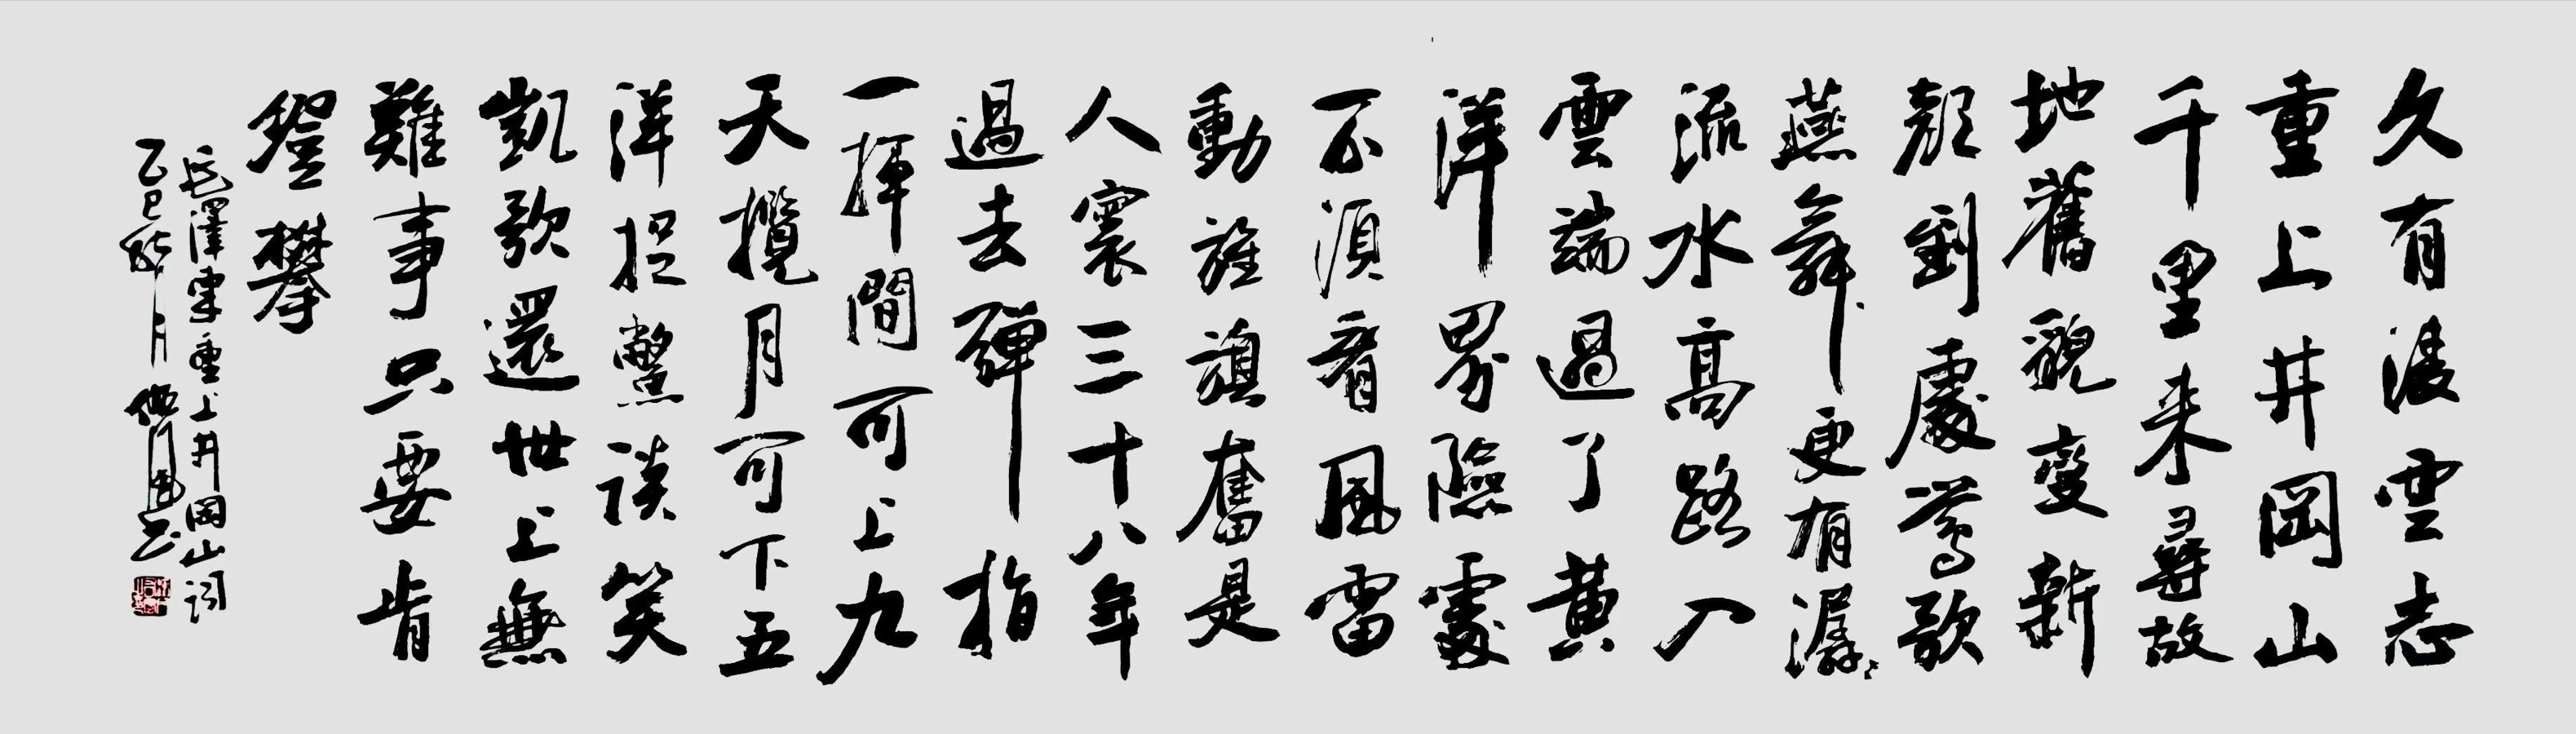 久有淩雲志
重上井岡山
千里来尋故
地舊貌變新
顏到處鶯歌
燕舞更有潺〻
流水高路入
雲端過了黄
洋界險處
不須看風雷
動旌旗奮是
人寰三十八年
過去彈指
一揮間可上九
天攬月可下五
洋捉鱉談笑
凱歌還世上無
難事只要肯
登攀
毛澤東重上井岡山詞
乙巳 月 書